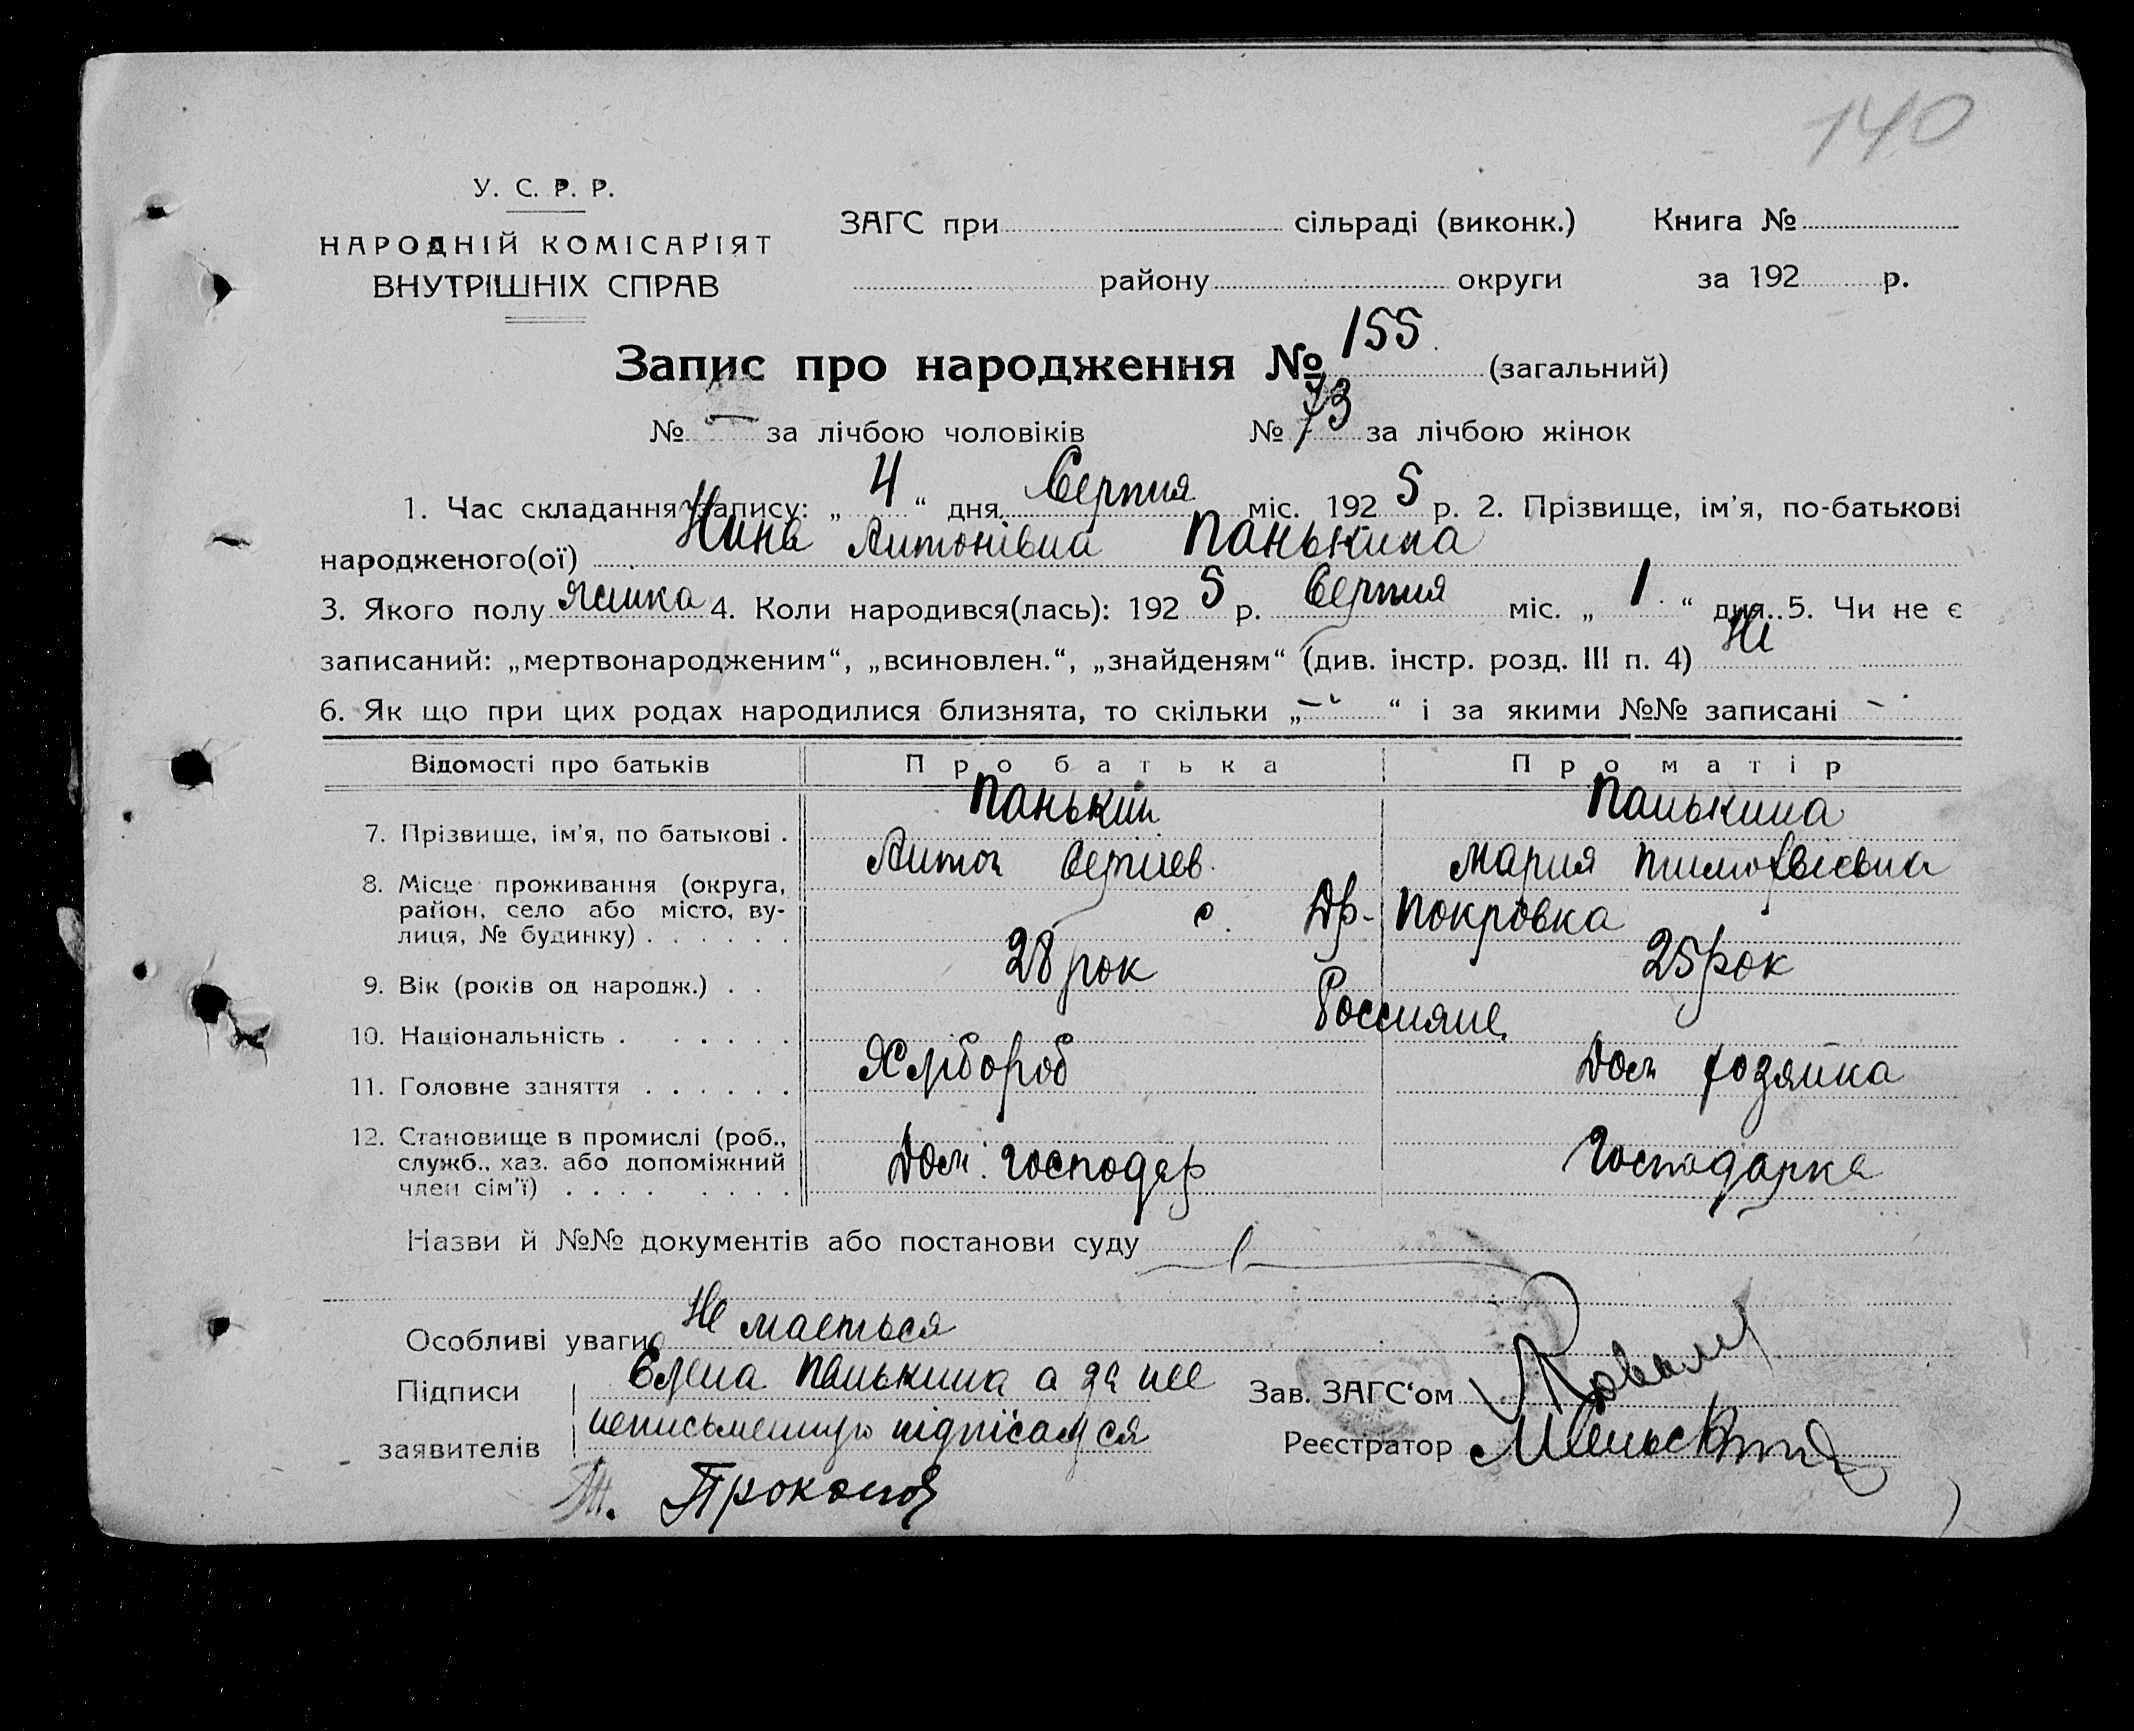 140
У. С. Р. Р.
НАРОДНІЙ КОМІСАРІЯТ
ВНУТРІШНІХ СПРАВ
ЗАГС при сільраді (виконк.) Книга №
району округи за 192 р.
Запис про народження № 155 (загальний)
№ — за лічбою чоловіків № 73 за лічбою жінок
1. Час складання запису: „ 4 “ дня Серпня міс. 192 5 р. 2. Прізвище, ім'я, по-батькові
народженого(ої) Нина Антонівна Панькина
3. Якого полу 4. Коли народився(лась): 192 5 р. Серпня міс. „ 1 “ дня 5. Чи не є
записаний: „мертвонародженим“, „всиновлен.“, „знайденям“ (див. інстр. розд. III п. 4) Ні
6. Як що при цих родах народилися близнята, то скільки „ — “ і за якими №№ записані —
Відомості про батьків Про батька Про матір
7. Прізвище, ім'я, по батькові . Панькин Панькина
Антон Сергиев. Мария Тимофвіевна
8. Місце проживання (округа, район, село або місто, ву-лиця, № будинку) . . . . . . с. Др-Покровка
9. Вік (років од народж.) . . 28 рок 25 рок
10. Національність . . . . . . Россияне
11. Головне заняття . . . . . . Хлібороб Дом хозяйка
12. Становище в промислі (роб., служб., хаз. або допоміжний член сім'ї) . . . . . . . . Дом. господар Господарка
Назви й №№ документів або постанови суду
Особливі уваги Не маеться
Підписи Єлена Панькина а за нее Зав. ЗАГС‘ом
заявителів неписьменную підпісался Реєстратор